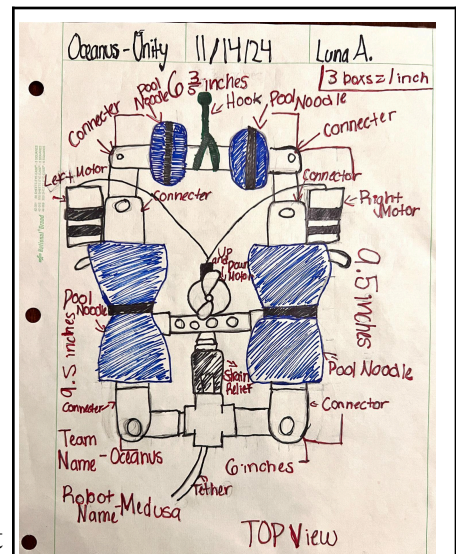 Oceanus-Unity
11/14/24
Luna A.
3 boxsz/inch
Pool Noodle
6 3/5 inches
Hook
Pool Noodle
Connecter
Connecter
Left Motor
Connecter
Connector
Right Motor
UP and Down Motor
9.5 inches
Pool Noodle
9.5 inches
Strain Relief
Pool Noodle
Connecter
Connector
Team Name-Oceanus
6 inches
Tether
Robot Name-Medusa
TOP View